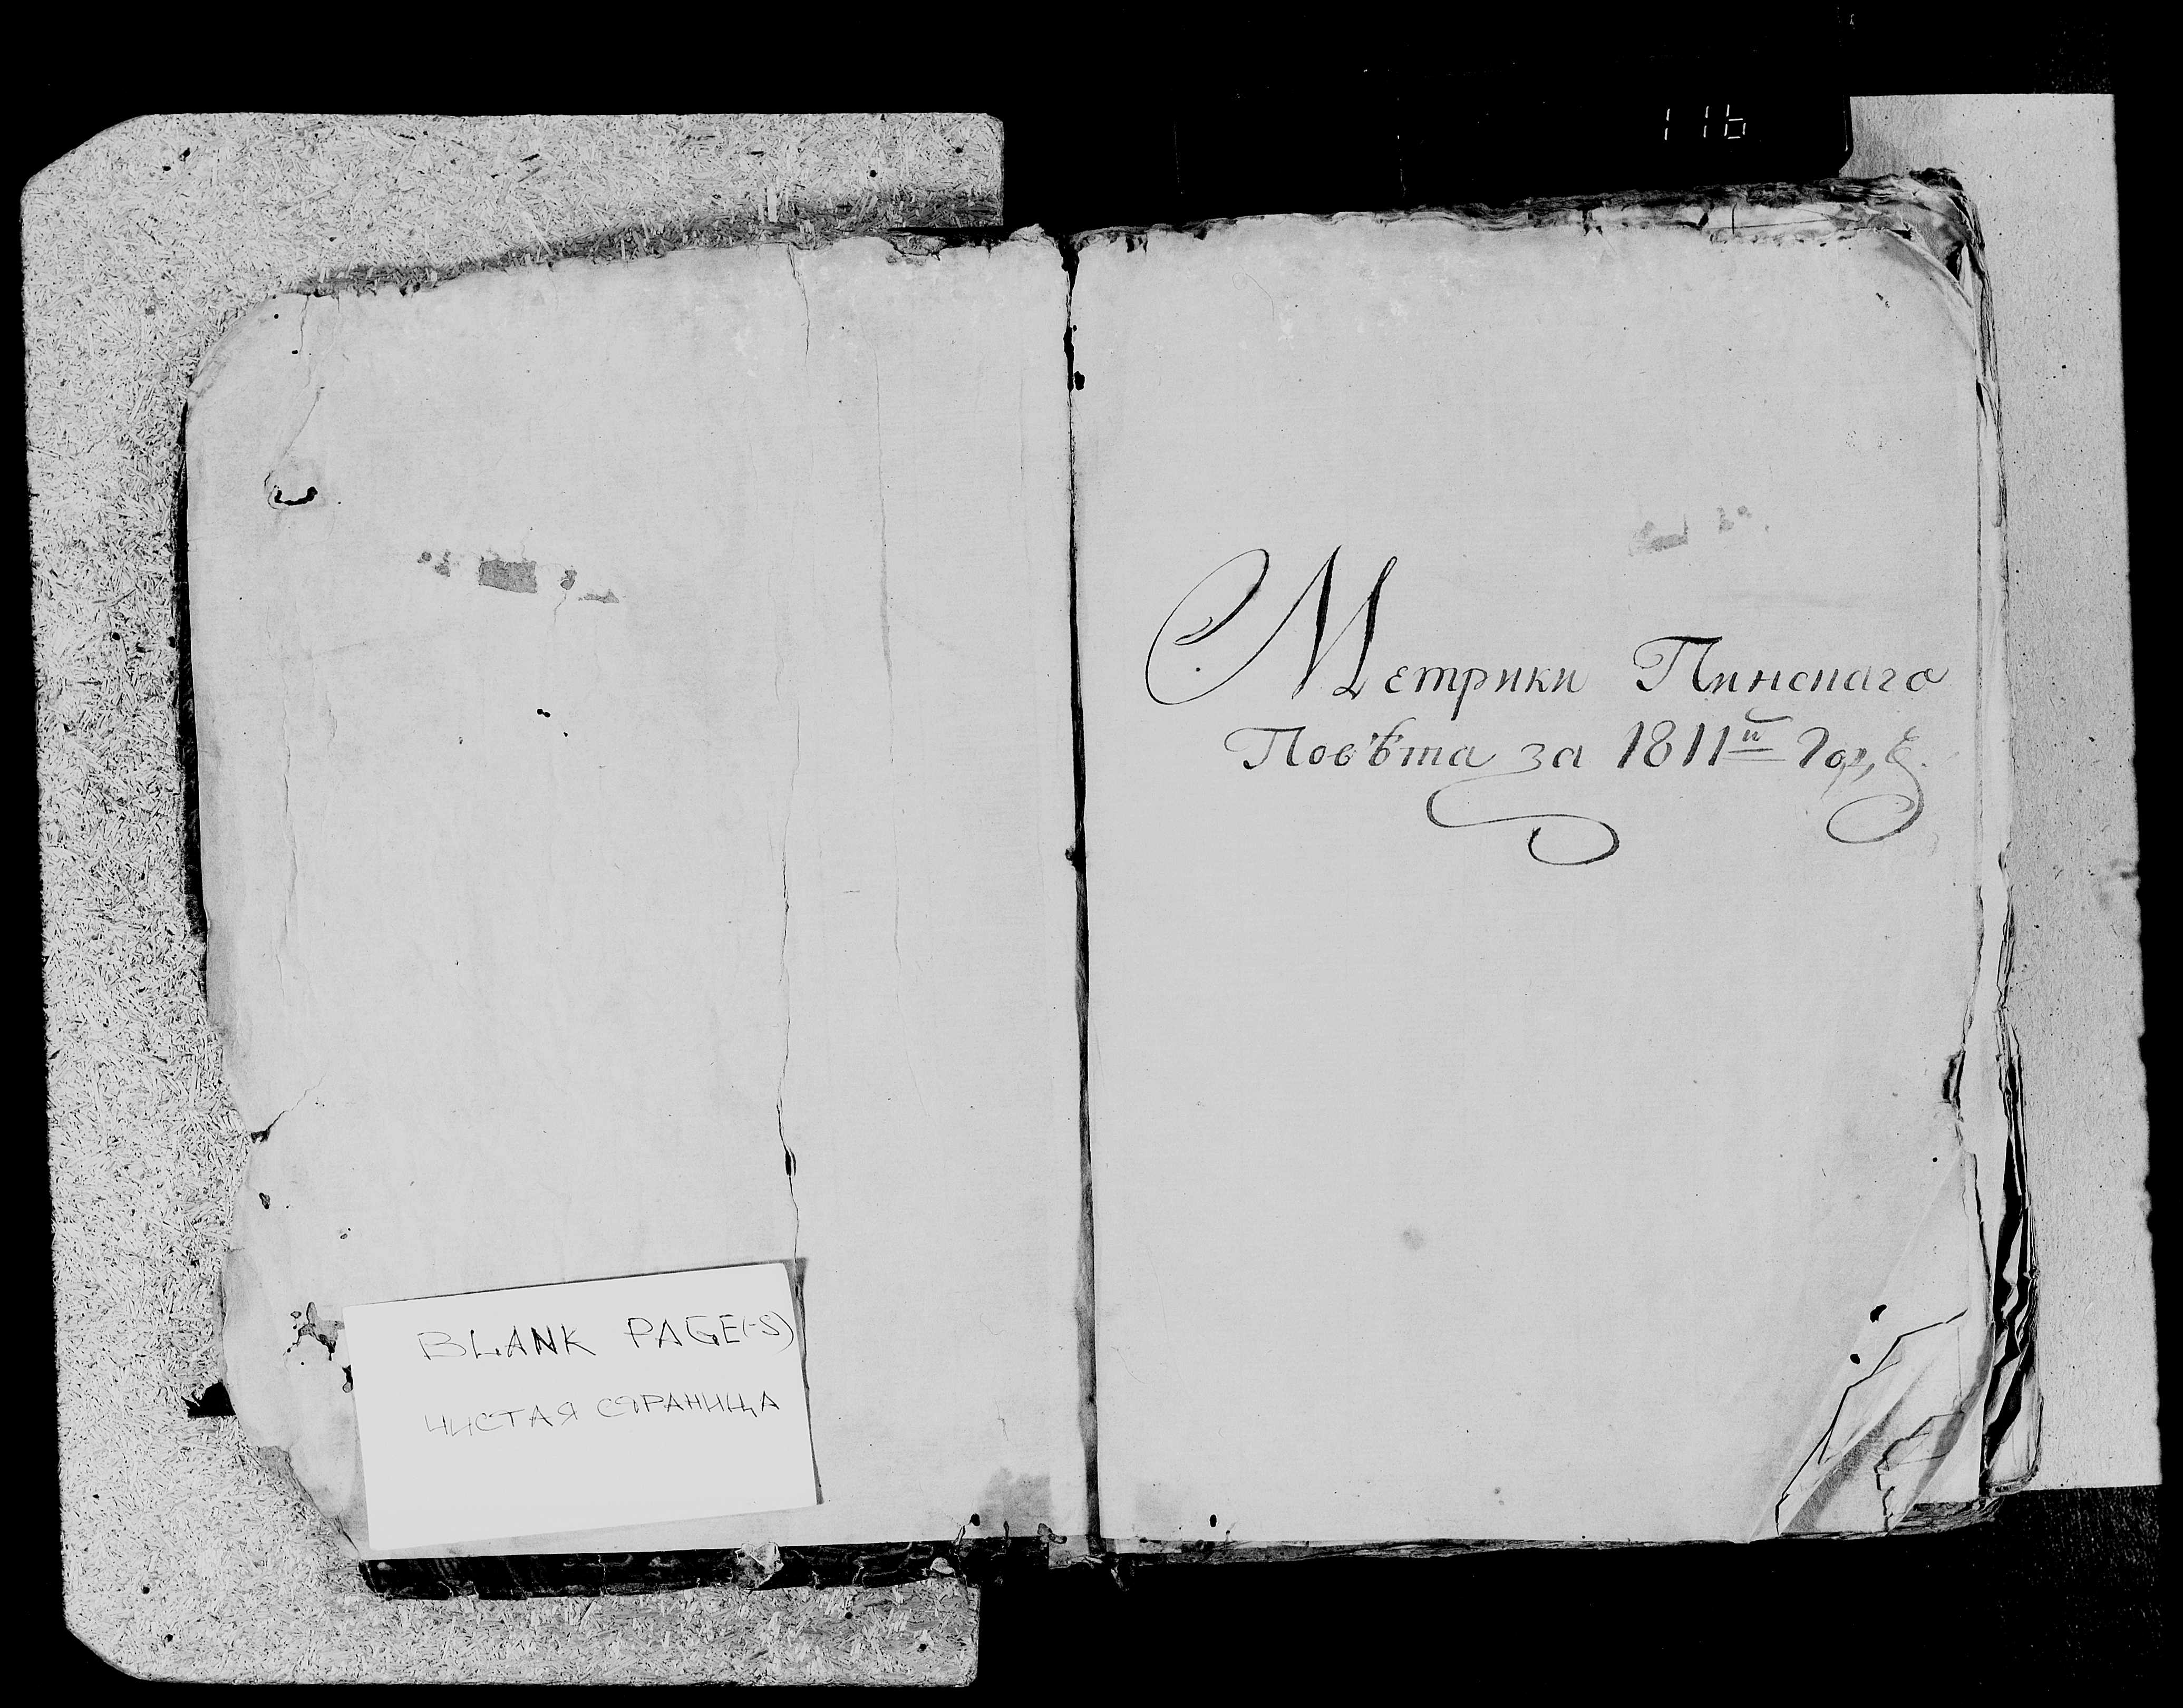 116
Метрики Пинскаго
Повѣта за 1811й Годъ.
BLANK PAGE(-S)
ЧИСТАЯ СТРАНИЦА